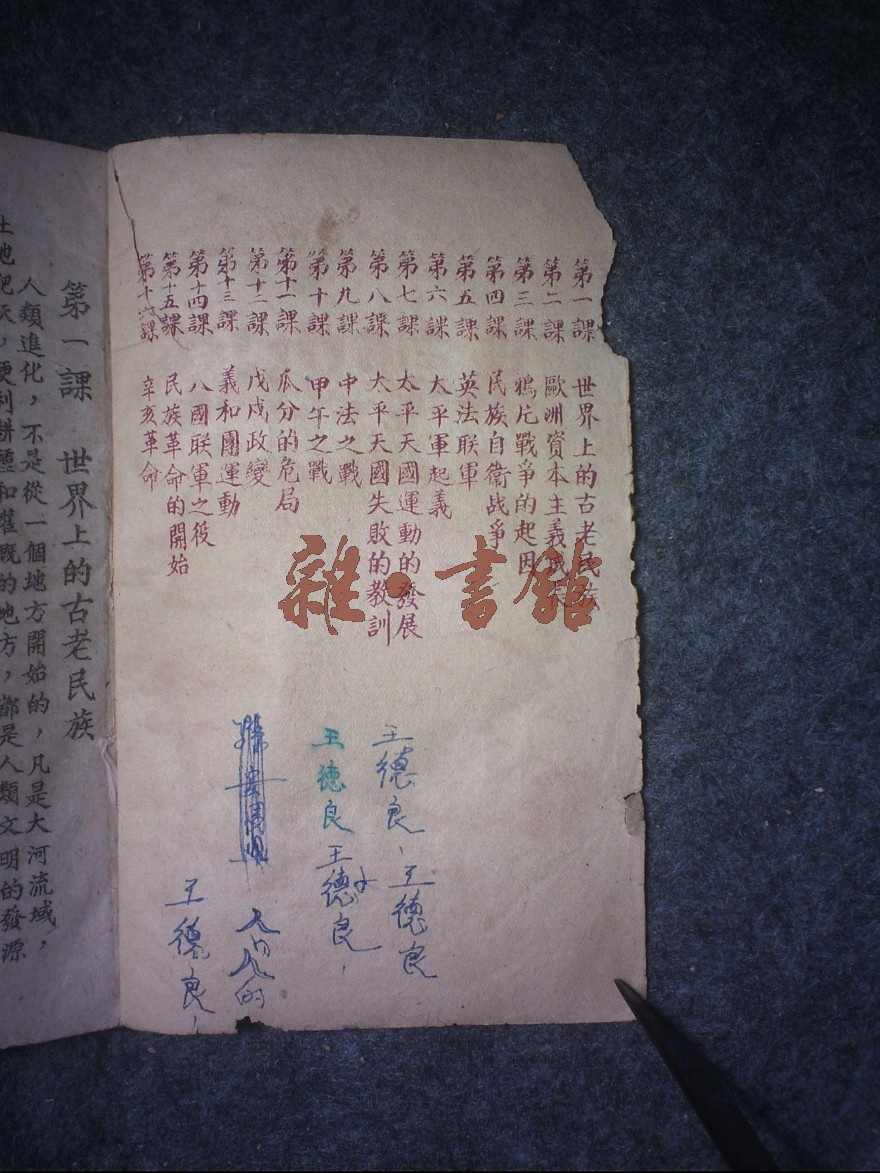 第一課 世界上的古老民族
第二課 歐洲資本主義
第三課 鴉片戰爭的起因
第四課 民族自衛战爭
第五課 英法联軍
第六課 太平軍起義
第七課 太平天國運動的發展
第八課 太平天國失敗的教訓
第九課 中法之戰
第十課 甲午之戰
第十一課 瓜分的危局
第十二課 戊戌政變
第十三課 義和團運動
第十四課 八國联軍之役
第十五課 民族革命的開始
第十六課 辛亥革命
雜·書館
王德良、王德良
王德良 王德良,
人的人的
王德良,
第一課 世界上的古老民族
人類進化,不是從一個地方開始的,凡是大河流域,
土地肥沃,便利耕種和灌溉的地方,都是人類文明的發源